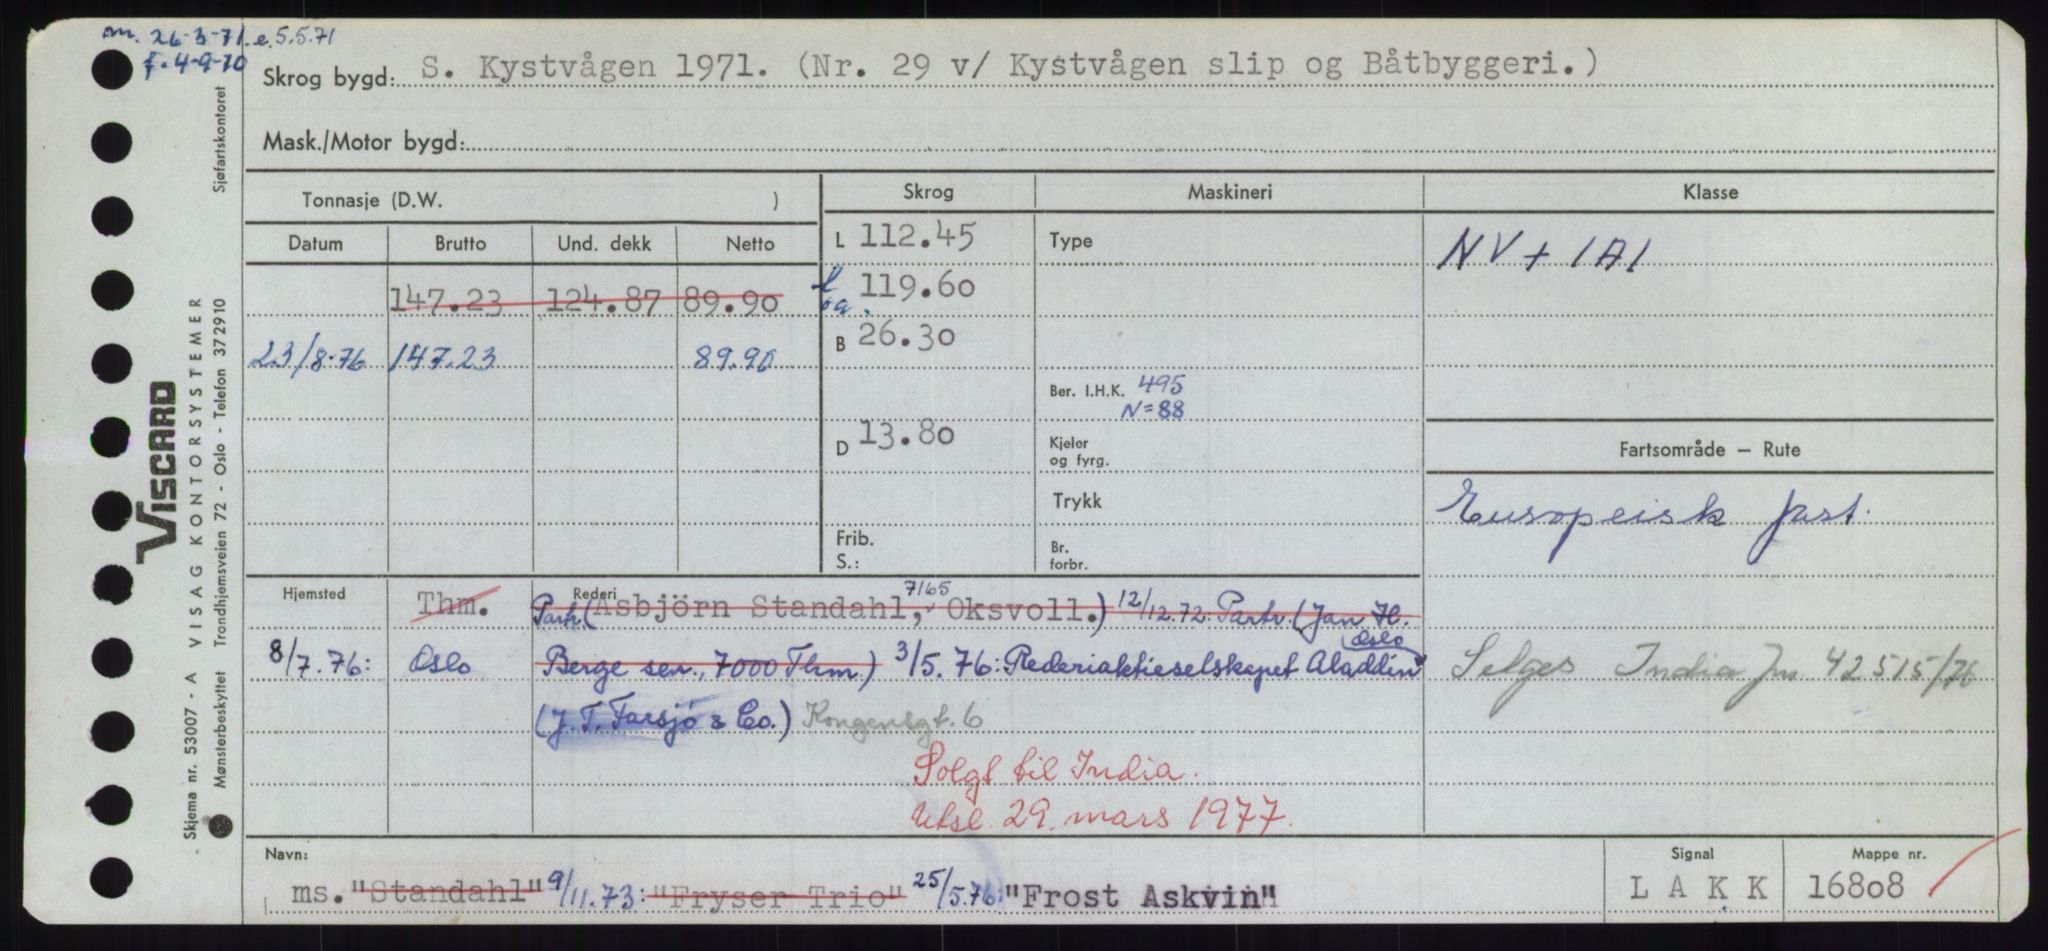 m. 26-3-71. e. 5.5.71
f. 4-9-70
Skrog bygd: S. Kystvågen 1971. (Nr. 29 v/ Kystvågen slip og Båtbyggeri.)
Mask./Motor bygd:
Tonnasje (D.W. )
Skrog
Maskineri
Klasse
Datum Brutto Und. dekk Netto
L 112.45
Type
NV + 1A1
147.23 124.87 89.90
l oa. 119.60
23/8-76 147.23 89.90
B 26.30
Ber. I.H.K. 495
N=88
D 13.80
Kjeler
og fyrg.
Fartsområde — Rute
Trykk
Europeisk fart.
Frib.
S.:
Br.
forbr.
Hjemsted Thm. Rederi
7165
Partr. (Asbjörn Standahl, Oksvoll.) 12/12.72. Partr. (Jan H.
Oslo
8/7.76: Oslo Berge sen., 7000 Thm.) 3/5.76: Rederiaktieselskapet Aladdin
Selges India Jnr. 42515/76
(J. T. Farsjö & Co.) Kongensgt. 6
Solgt til India.
Utsl. 29. mars 1977.
Navn:
Signal
Mappe nr.
ms. "Standahl" 9/11.73: "Fryser Trio" 25/5.76: "Frost Askvin"
L A K K
16808
VISCARD
Skjema nr. 53007 - A VISAG KONTORSYSTEMER
Mønsterbeskyttet Trondhjemsveien 72 - Oslo - Telefon 372910 Sjøfartskontoret